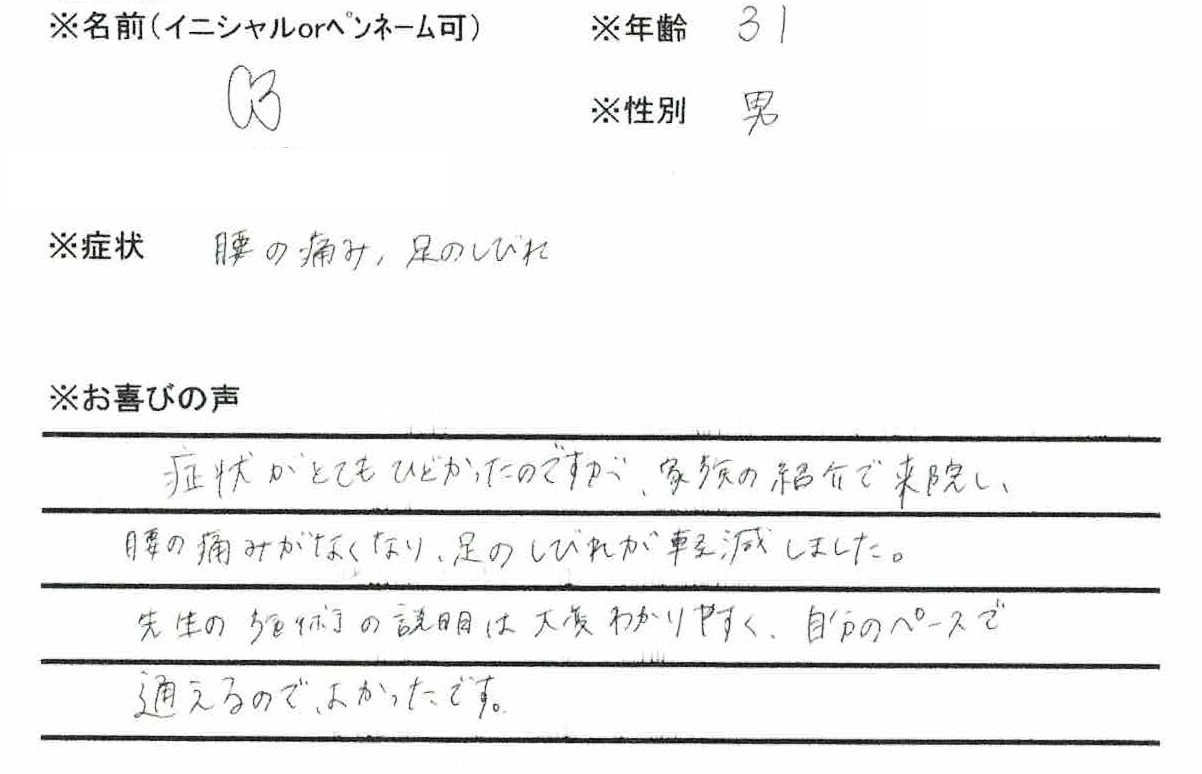 ※名前(イニシャルorペンネーム可) ※年齢 31
※性別 男
※症状 腰の痛み、足のしびれ
※お喜びの声
症状がとてもひどかったのですが、家族の紹介で来院し、
腰の痛みがなくなり、足のしびれが軽減しました。
先生の施術の説明は大変わかりやすく、自分のペースで
通えるので、よかったです。